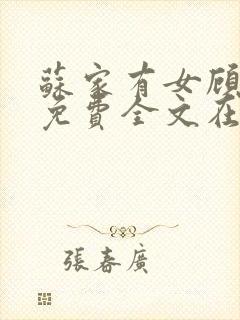 蘇家有女顾
免費全文在
張春廣